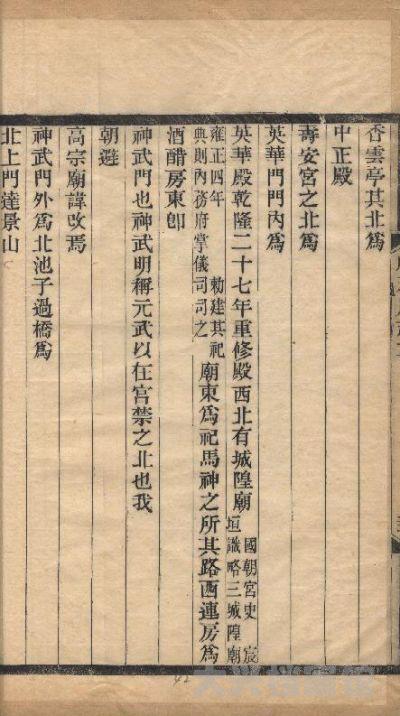 香雲亭其北爲
中正殿
壽安宮之北爲
英華門門內爲
英華殿乾隆二十七年重修殿西北有城隍廟國朝宮史宸垣識略三城隍廟
雍正四年 勅建其祀典則內務府掌儀司司之廟東爲祀馬神之所其路西連房爲
酒醋房東卽
神武門也神武明稱元武以在宮禁之北也我
朝避
高宗廟諱改焉
神武門外爲北池子過橋爲
北上門達景山
42